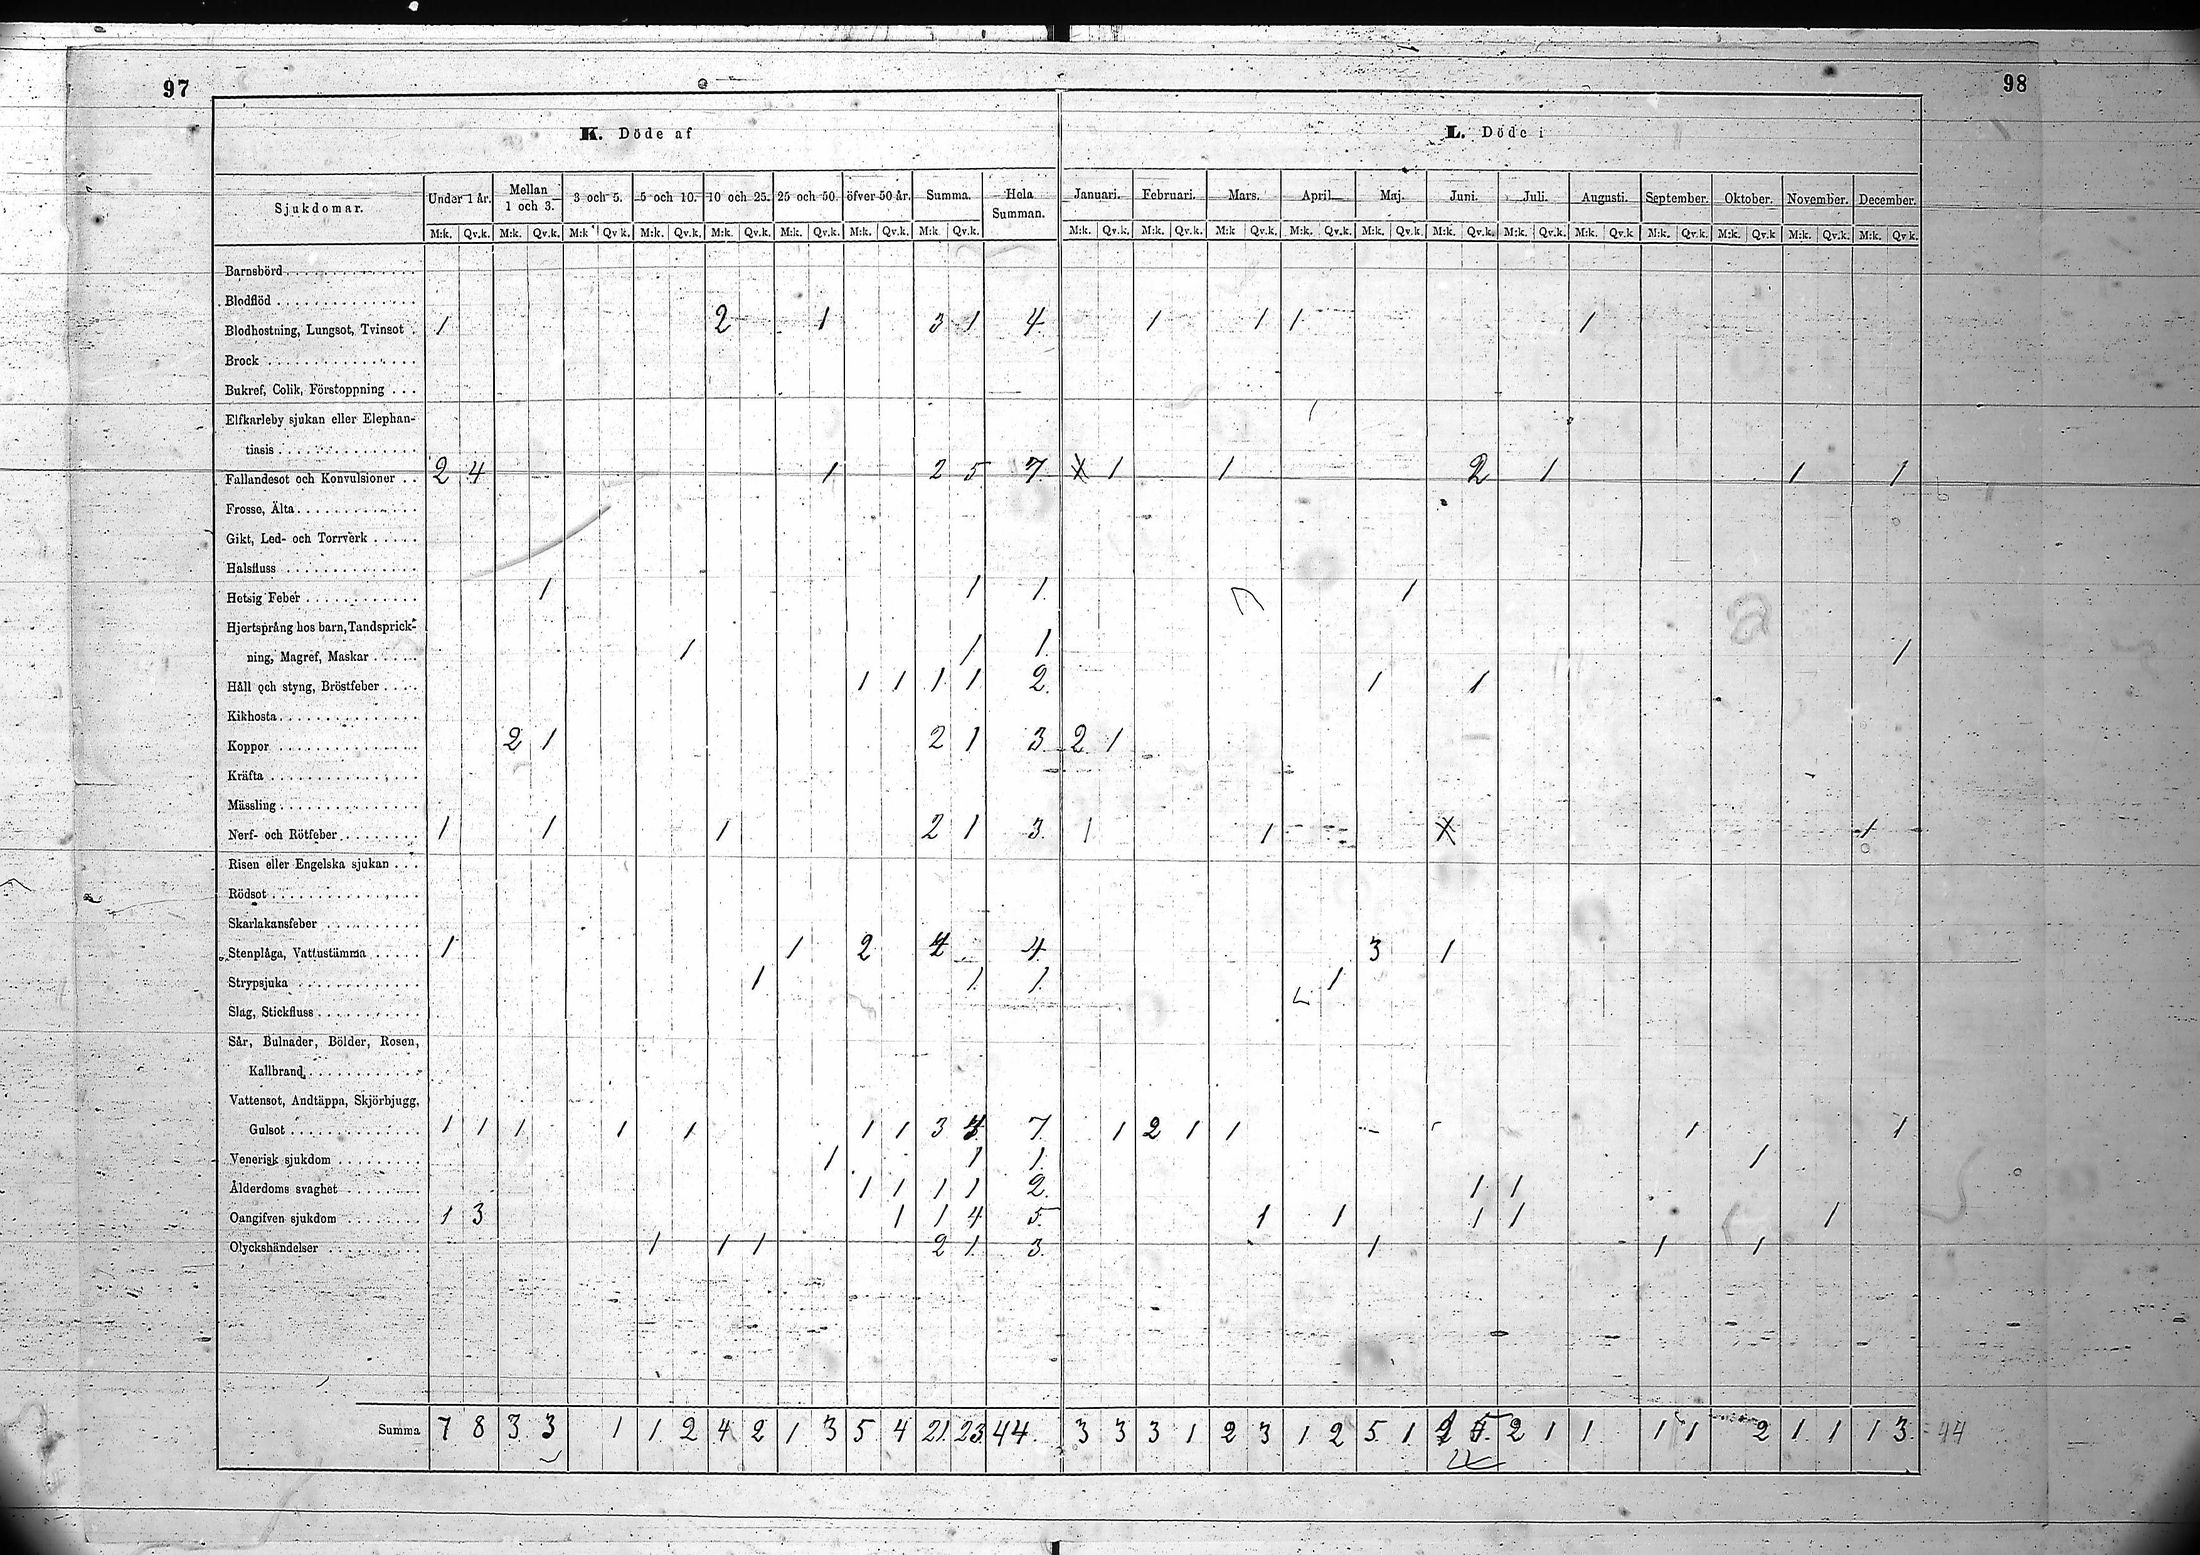 97
98
K. Döde af
L. Döde i
Sjukdomar. Under 1 år. Mellan 1 och 3. 3 och 5. 5 och 10. 10 och 25. 25 och 50. öfver 50 år. Summa. Hela Summan. Januari. Februari. Mars. April. Maj. Juni. Juli. Augusti. September. Oktober. November. December.
M:k. Qv.k. M:k. Qv.k. M:k Qv k. M:k. Qv.k. M:k. Qv.k. M:k. Qv.k. M:k. Qv.k. M:k Qv.k. M:k. Qv.k. M:k. Qv.k. M:k Qv.k. M:k. Qv.k. M:k. Qv.k. M:k. Qv.k. M:k. Qv.k. M:k. Qv.k M:k. Qv.k. M:k. Qv.k M:k. Qv.k. M:k. Qv k.
Barnsbörd
Blodflöd
Blodhostning, Lungsot, Tvinsot 1 2 1 3 1 4 1 1 1 1
Brock
Bukref, Colik, Förstoppning
Elfkarleby sjukan eller Elephan-
tiasis
Fallandesot och Konvulsioner 2 4 1 2 5 7 1 1 2 1 1 1
Frosse, Älta
Gikt, Led- och Torrverk
Halsfluss
Hetsig Feber 1 1 1. 1
Hjertsprång hos barn, Tandsprick-
ning, Magref, Maskar 1 1 1. 1
Håll och styng, Bröstfeber 1 1 1 1 2. 1 1
Kikhosta
Koppor 2 1 2 1 3 2 1
Kräfta
Mässling
Nerf- och Rötfeber 1 1 1 2 1 3. 1 1 1
Risen eller Engelska sjukan
Rödsot
Skarlakansfeber
Stenplåga, Vattustämma 1 1 2 4 4. 3 1
Strypsjuka 1 1. 1. 1
Slag, Stickfluss
Sår, Bulnader, Bölder, Rosen,
Kallbrand
Vattensot, Andtäppa, Skjörbjugg,
Gulsot 1 1 1 1 1 1 1 3 4 7. 1 2 1 1 1 1
Venerisk sjukdom 1 1 1. 1
Ålderdoms svaghet 1 1 1 1 2. 1 1
Oangifven sjukdom 1 3 1 1 4 5. 1 1 1 1 1
Olyckshändelser 1 1 1 2 1. 3. 1 1 1
Summa 7 8 3 3 1 1 2 4 2 1 3 5 4 21. 23. 44. 3 3 3 1 2 3 1 2 5. 1. 2 1 1 1 1 2 1. 1 1 3. = 44